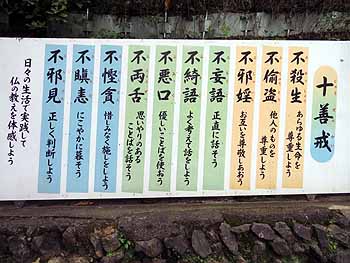 十善戒
不殺生
あらゆる生命を
尊重しよう
不偸盗
他人のものを
尊重しよう
不邪婬
お互いを尊敬しあおう
不妄語
正直に話そう
不綺語
よく考えて話そう
不悪口
優しいことばを使おう
不両舌
思いやりのある
ことばを話そう
不慳貪
惜しみなく施しをしよう
不瞋恚
にこやかに暮そう
不邪見
正しく判断しよう
日々の生活で実践して
仏の教えを体感しよう